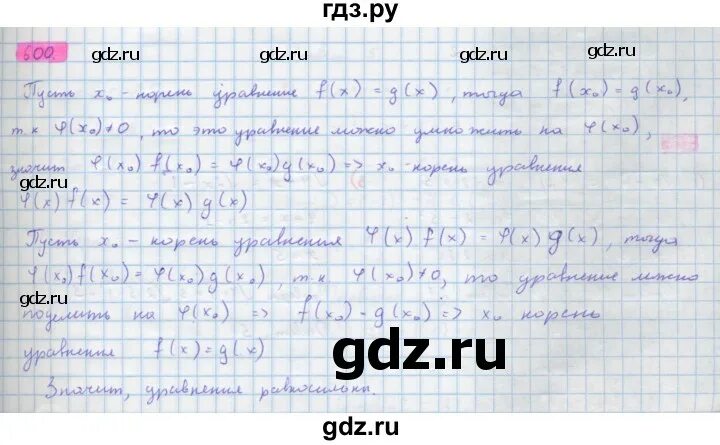 гдз.ру
600.
gdz.ru gdz.ru gdz.ru
Пусть x₀ - корень уравнение f(x) = g(x), тогда f(x₀) = g(x₀),
т.к φ(x₀)≠0, то это уравнение можно умножить на φ(x₀),
значит φ(x₀) f(x₀) = φ(x₀)g(x₀) => x₀ - корень уравнения
gdz.ru gdz.ru gdz.ru
φ(x) f(x) = φ(x) g(x)
Пусть x₀ - корень уравнения φ(x) f(x) = φ(x) g(x), тогда
φ(x₀)f(x₀) = φ(x₀)g(x₀), т.к. φ(x₀)≠0, то уравнение можно
gdz.ru gdz.ru gdz.ru
поделить на φ(x₀) => f(x₀) - g(x₀) => x₀ корень
уравнения f(x) = g(x)
gdz.ru
Значит, уравнения равносильны.
gdz.ru gdz.ru